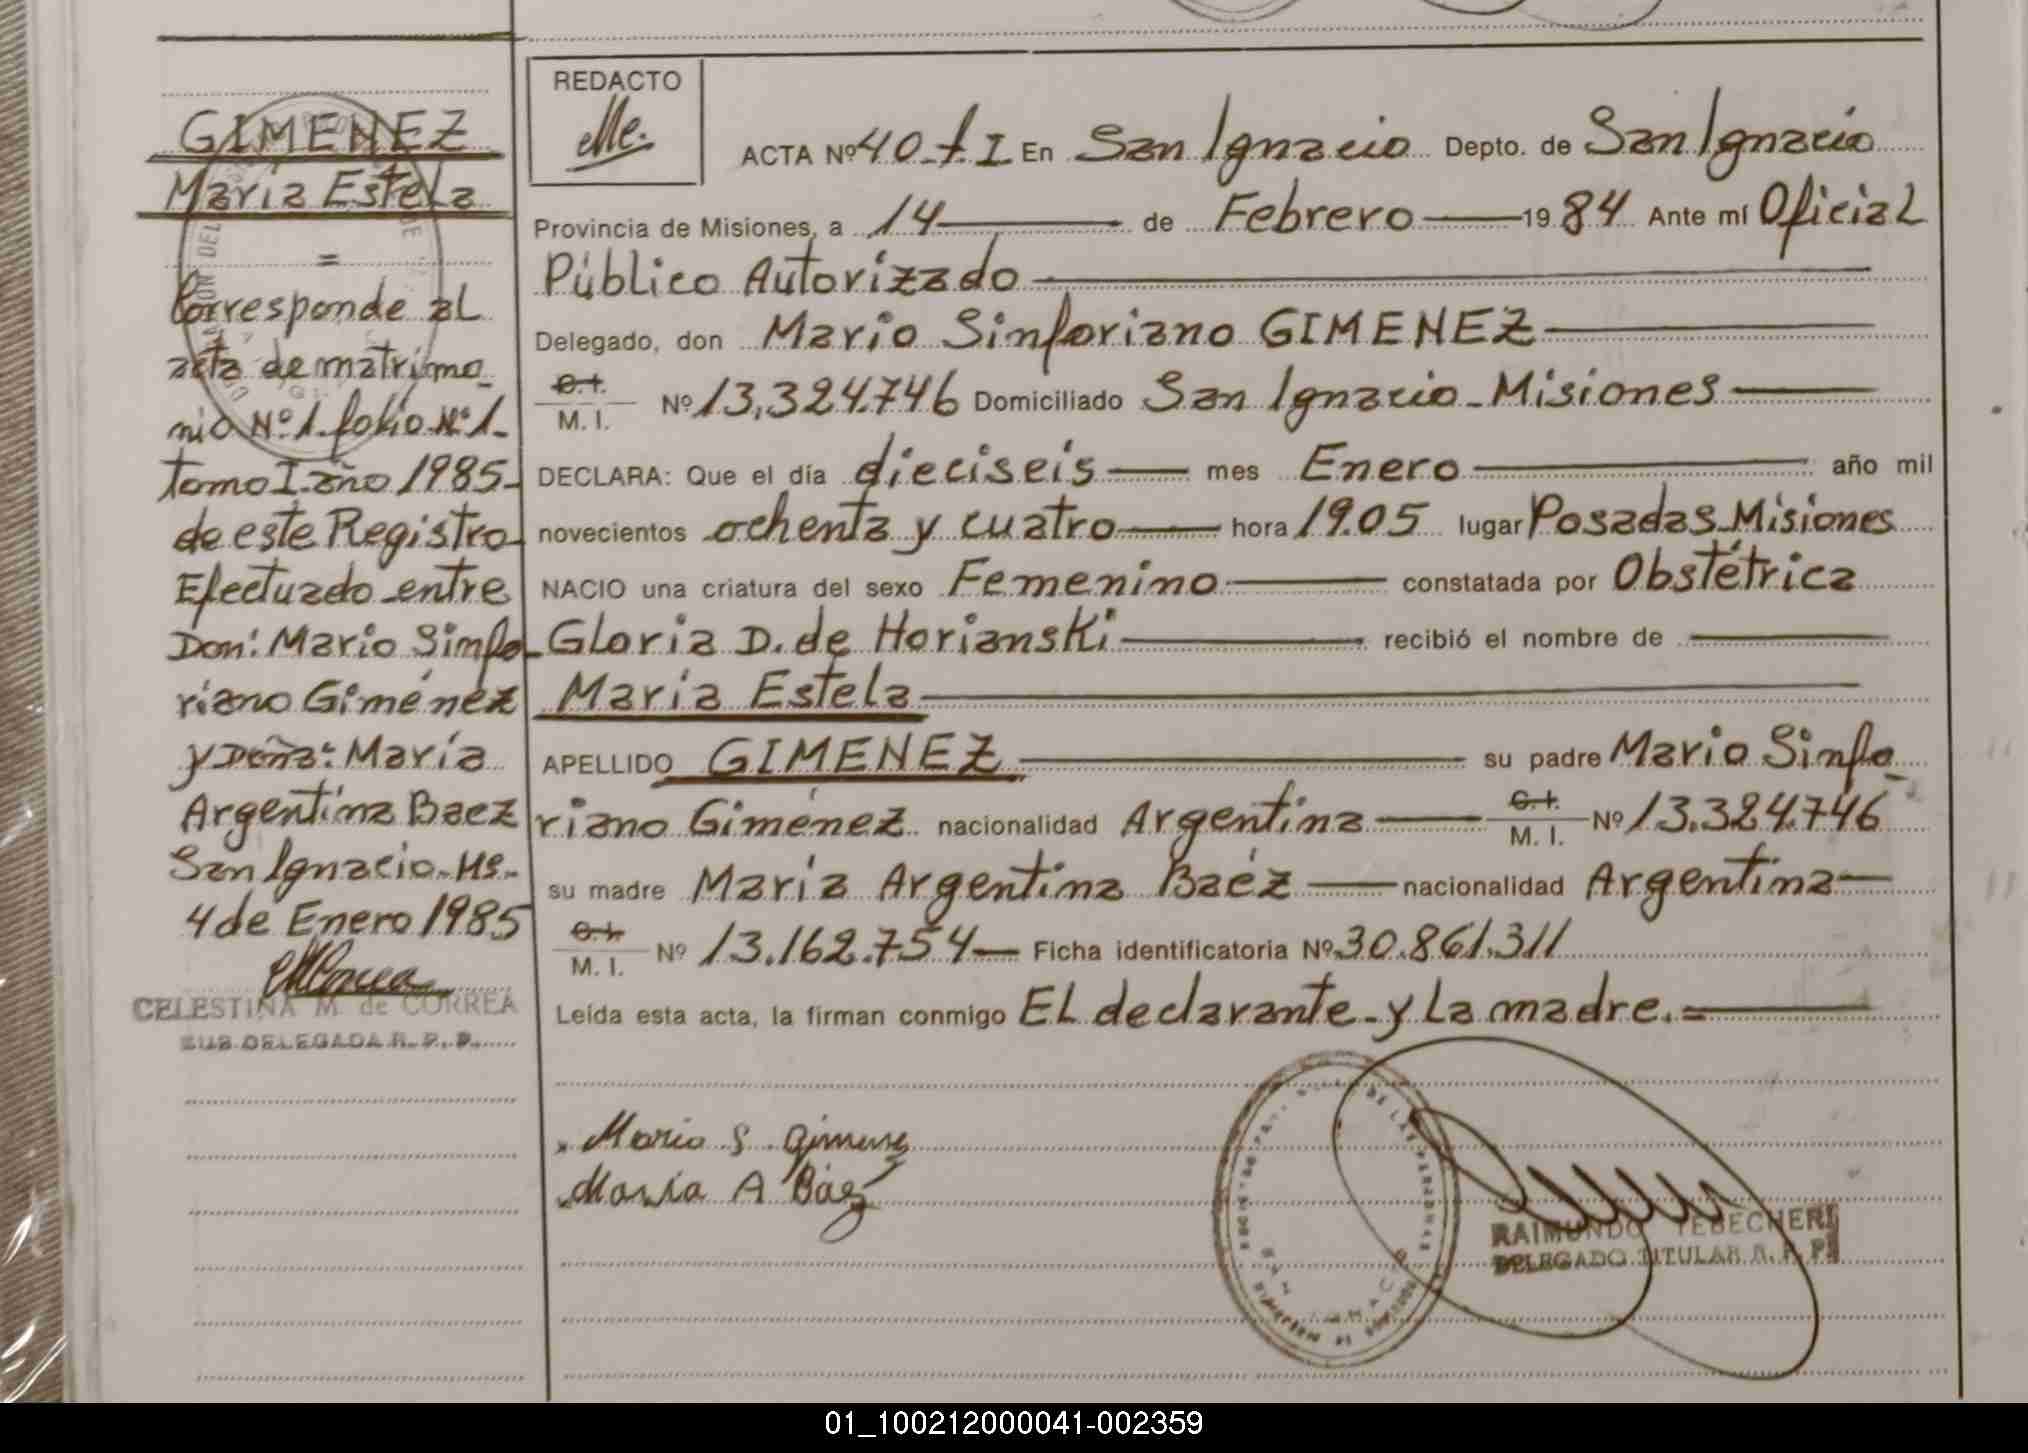 GIMENEZ
Maria Estela
=
Corresponde al
acta de matrimo_
nio Nº1.folio.Nº1_
tomo I.año 1985_
de este Registro_
Efectuado_entre
Don: Mario Sinfo_
riano Giménez
y Doña: María
Argentina Baez
San Ignacio_Ms._
4 de Enero 1985
CELESTINA M. de CORREA
SUB DELEGADA R. P. P.
REDACTO
ACTA Nº 40_f_I En San Ignacio Depto. de San Ignacio
Provincia de Misiones, a 14 de Febrero 1984 Ante mí Oficial
Público Autorizado
Delegado, don Mario Sinforiano GIMENEZ
C.I. / M. I. Nº 13.324.746 Domiciliado San Ignacio_Misiones
DECLARA: Que el día dieciseis mes Enero año mil
novecientos ochenta y cuatro hora 19.05 lugar Posadas_Misiones
NACIO una criatura del sexo Femenino constatada por Obstétrica
Gloria D. de Horianski recibió el nombre de
María Estela
APELLIDO GIMENEZ su padre Mario Sinfo_
riano Giménez nacionalidad Argentina C.I. / M. I. Nº 13.324.746
su madre María Argentina Baéz nacionalidad Argentina
C.I. / M. I. Nº 13.162.754 Ficha identificatoria Nº 30.861.311
Leída esta acta, la firman conmigo El declarante_y La madre.=
Mario S. Gimenez
Maria A Báez
SAN IGNACIO
RAIMUNDO TEBECHERI
DELEGADO TITULAR R. P. P.
01_100212000041-002359